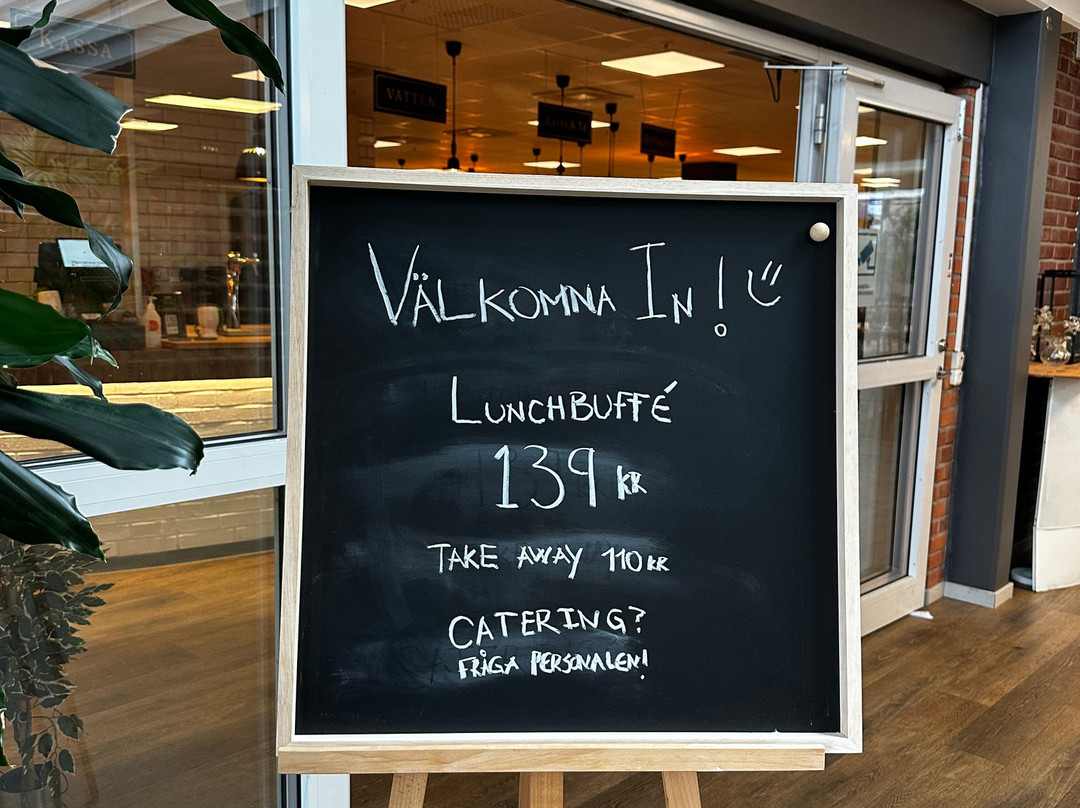 KASSA
VATTEN
VÄLKOMNA IN!
LUNCHBUFFÉ
139 KR
TAKE AWAY 110 KR
CATERING?
FRÅGA PERSONALEN!